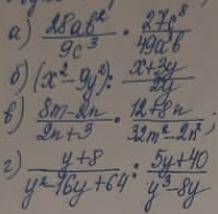 а) 28ab²/9c³ · 27c⁸/49a³b
б) (x²-9y²) : x+3y/2y
в) 8m-2n/2n+3 · 12+8n/32m²-2n² ;
г) y+8/y²-16y+64 : 5y+40/y³-8y